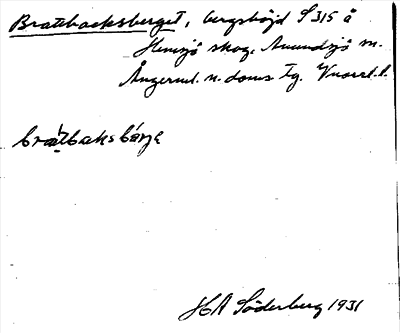 Brattbacksberget, bergshöjd S 315 å
Hemsjö skog, Anundsjö sn.
Ångerml. n. doms Tg. Vnorrl. l.
bráttbaksbärje
HA Söderberg 1931